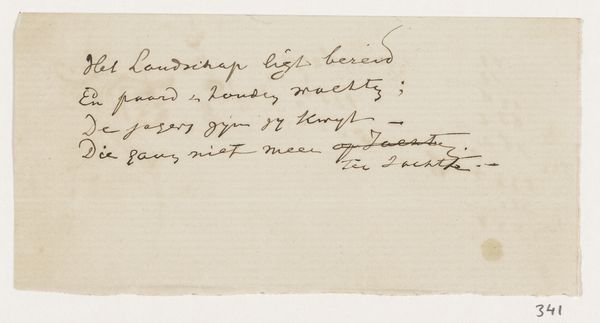 Het Landschap ligt bereid
En paard & honden wachten;
De jagers zijn zij kwyt —
Die gaan niet meer op Jachten.
ter Jacht. —
341